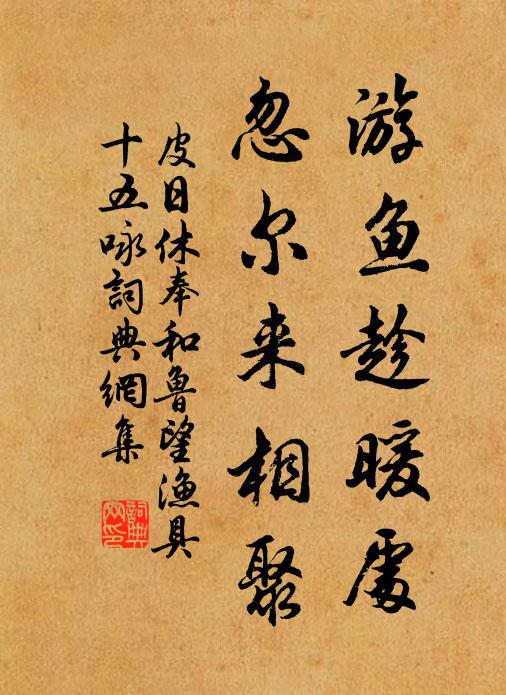 游鱼趁暖處
忽尔来相聚
皮日休奉和魯望漁具
十五咏詞典網集
詞典
网印